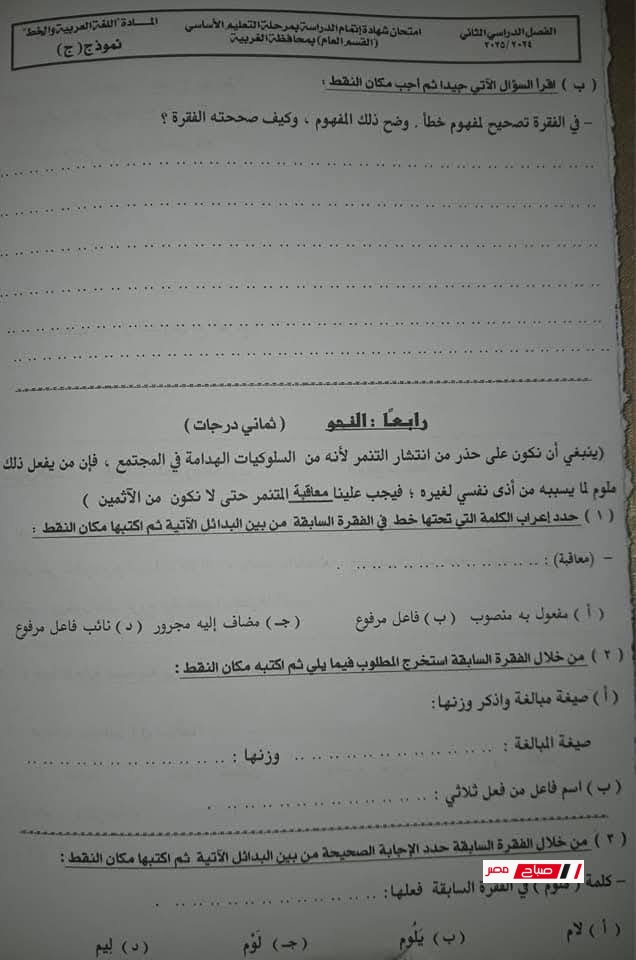 الفصل الدراسي الثاني
٢٠٢٥/٢٠٢٤
امتحان شهادة إتمام الدراسة بمرحلة التعليم الأساسي
(القسم العام) بمحافظة الغربية
المـــادة "اللغة العربية والخط"
نموذج (ج)
( ب ) اقرأ السؤال الآتي جيدا ثم أجب مكان النقط :
- في الفقرة تصحيح لمفهوم خطأ . وضح ذلك المفهوم ، وكيف صححته الفقرة ؟
رابعًا : النحو ( ثماني درجات )
(ينبغي أن نكون على حذر من انتشار التنمر لأنه من السلوكيات الهدامة في المجتمع ، فإن من يفعل ذلك
ملوم لما يسببه من أذى نفسي لغيره ؛ فيجب علينا معاقبة المتنمر حتى لا نكون من الآثمين )
( ١ ) حدد إعراب الكلمة التي تحتها خط في الفقرة السابقة من بين البدائل الآتية ثم اكتبها مكان النقط :
- (معاقبة) : .. .. .. .. .. .. .. .. .. .. .. .. .
( أ ) مفعول به منصوب ( ب ) فاعل مرفوع ( جـ) مضاف إليه مجرور ( د ) نائب فاعل مرفوع
( ٢ ) من خلال الفقرة السابقة استخرج المطلوب فيما يلي ثم اكتبه مكان النقط :
( أ ) صيغة مبالغة واذكر وزنها:
صيغة المبالغة : .. .. .. .. .. .. .. .. .. .. .. وزنها : .. .. .. .. .. .. .. .. .. .. ..
( ب ) اسم فاعل من فعل ثلاثي : .. .. .. .. .. .. .. .. .. .. .. .
( ٣ ) من خلال الفقرة السابقة حدد الإجابة الصحيحة من بين البدائل الآتية ثم اكتبها مكان النقط :
- كلمة ( ملوم ) في الفقرة السابقة فعلها: .. .. .. .. .. .. .. .. .. .. .. .
صباح مصر
( أ ) لام ( ب ) يَلُوم ( جـ ) لَوْم ( د ) لِيم